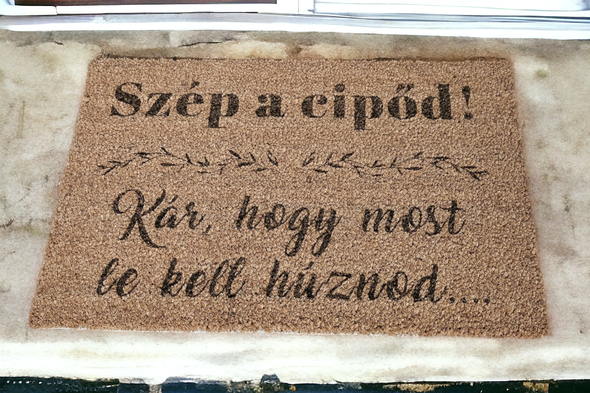 Szép a cipőd!
Kár, hogy most
le kell húznod....